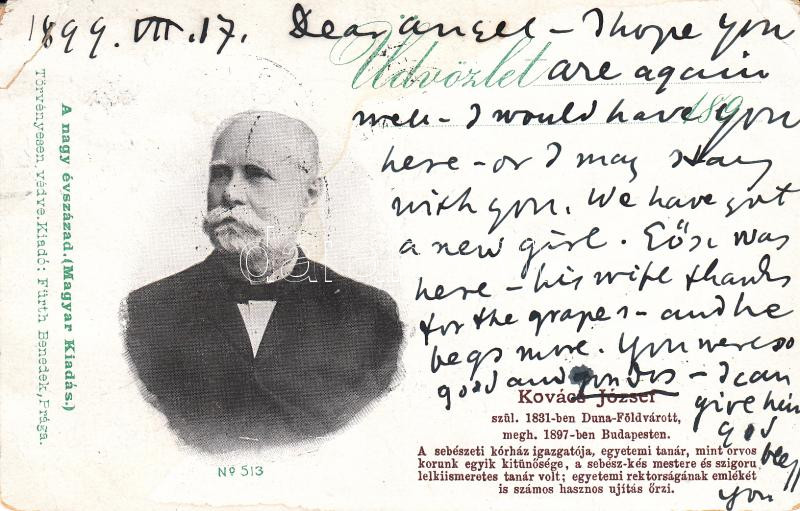 1899. VII. 17. Dear angel – I hope you
Üdvözlet
are again
189
well – I would have you
here – or I may stay
with you. We have got
a new girl. Eősi was
here – his wife thanks
for the grapes – and he
begs more. You were so
good and gondos – I can
give him
god
bless
you
A nagy évszázad. (Magyar Kiadás.)
Törvényesen védve. Kiadó: Fürth Benedek, Prága.
darabanth
No 513
Kovács József
szül. 1831-ben Duna-Földvárott,
megh. 1897-ben Budapesten.
A sebészeti kórház igazgatója, egyetemi tanár, mint orvos
korunk egyik kitünősége, a sebész-kés mestere és szigoru
lelkiismeretes tanár volt; egyetemi rektorságának emlékét
is számos hasznos ujitás őrzi.